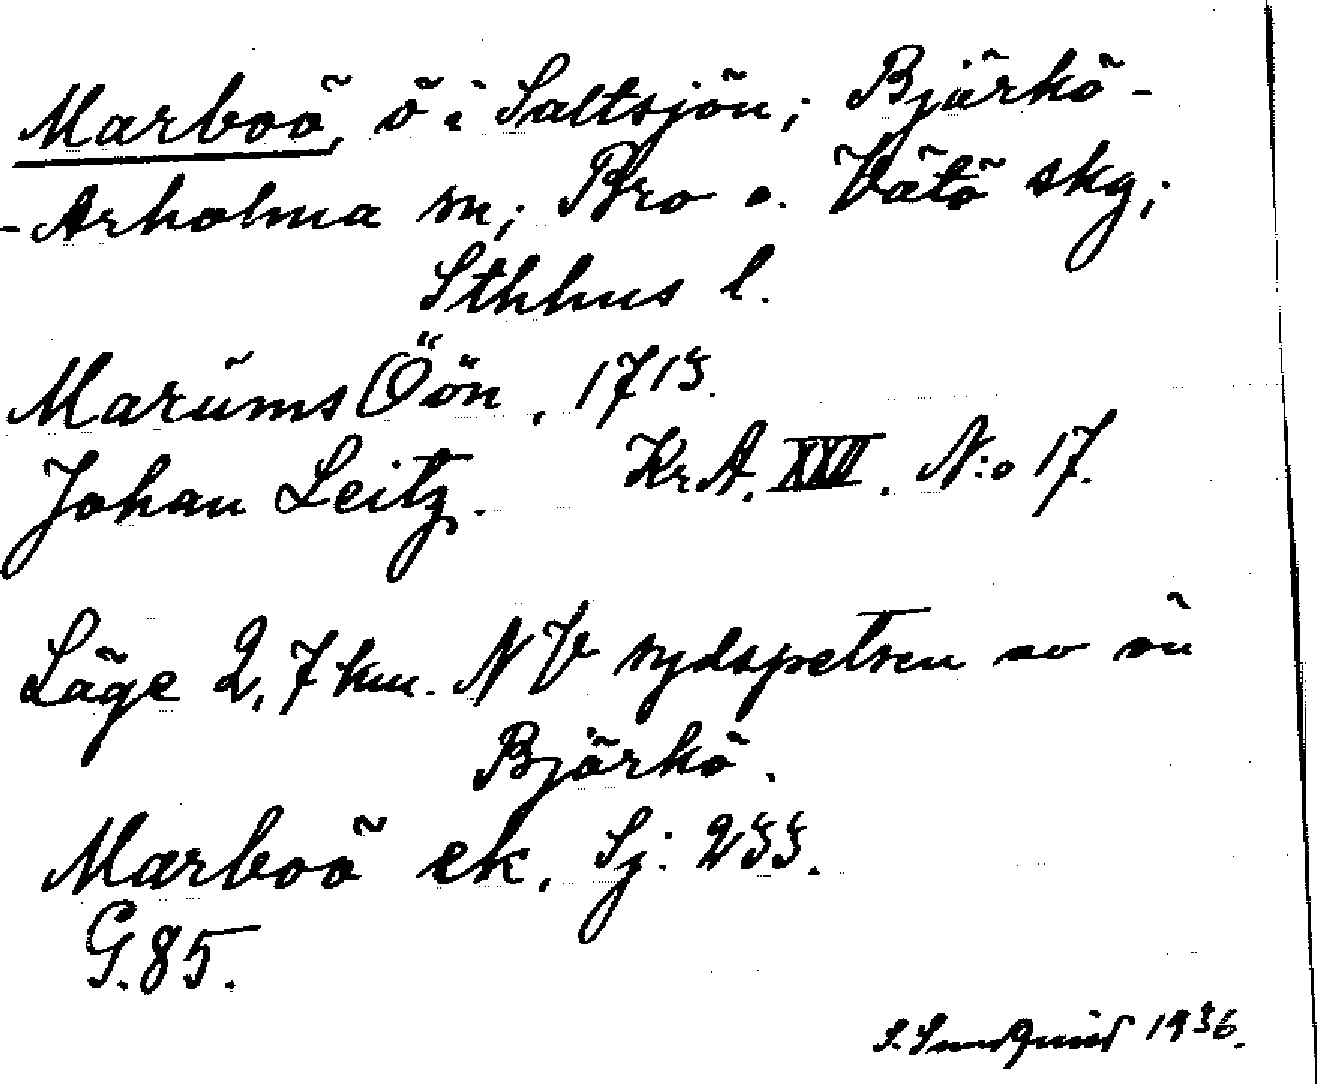 Marboö, ö i Saltsjön; Björkö-
-Arholma sn; Bro o. Vätö skg;
Sthlms l.
Marüms Öön, 1713.
Johan Leitz. Kr.A. XXII. N:o 17.
Läge 2,7 km. NV sydspetsen av ön
Björkö.
Marboö ek. Sj: 233.
G.85.
S. Sundquist 1936.